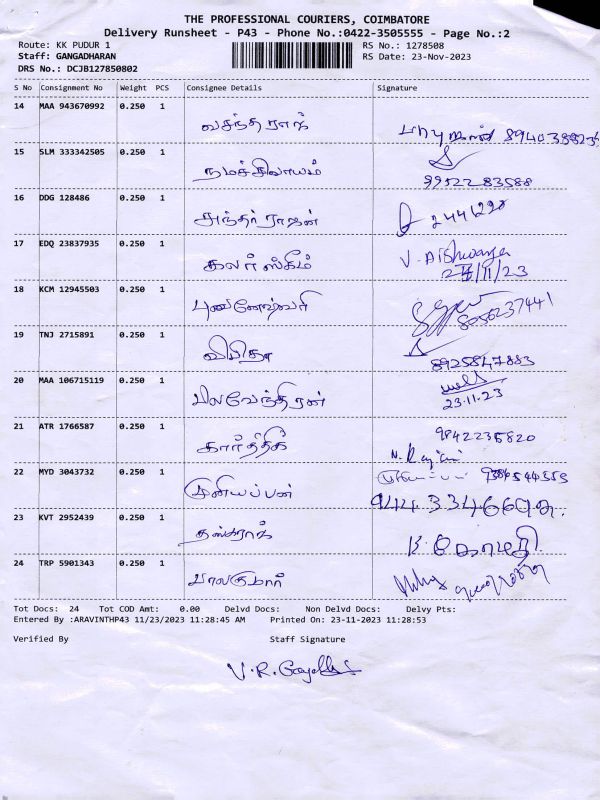 THE PROFESSIONAL COURIERS, COIMBATORE
Delivery Runsheet - P43 - Phone No.:0422-3505555 - Page No.:2
Route: KK PUDUR 1 RS No.: 1278508
Staff: GANGADHARAN RS Date: 23-Nov-2023
DRS No.: DCJB127850802
S No Consignment No Weight PCS Consignee Details Signature
14 MAA 943670992 0.250 1
வசந்தராஜ்
15 SLM 333342505 0.250 1
நமச்சிவாயம் 9952283588
16 DDG 128486 0.250 1
சுந்தர்ராஜன் 2441290
17 EDQ 23837935 0.250 1 V. Aishwarya
கலர்ஸ்கீம் 11/23
18 KCM 12945503 0.250 1
புவனேஷ்வரி 8056237441
19 TNJ 2715891 0.250 1
விபிதா 8925847883
20 MAA 106715119 0.250 1
பாலவேந்திரன் 23.11.23
21 ATR 1766587 0.250 1 9842235820
கார்த்திக்
22 MYD 3043732 0.250 1
முனியப்பன்
23 KVT 2952439 0.250 1
தஸ்ராஜ் K. கோமதி
24 TRP 5901343 0.250 1
பாலகுமார்
Tot Docs: 24 Tot COD Amt: 0.00 Delvd Docs: Non Delvd Docs: Delvy Pts:
Entered By :ARAVINTHP43 11/23/2023 11:28:45 AM Printed On: 23-11-2023 11:28:53
Verified By Staff Signature